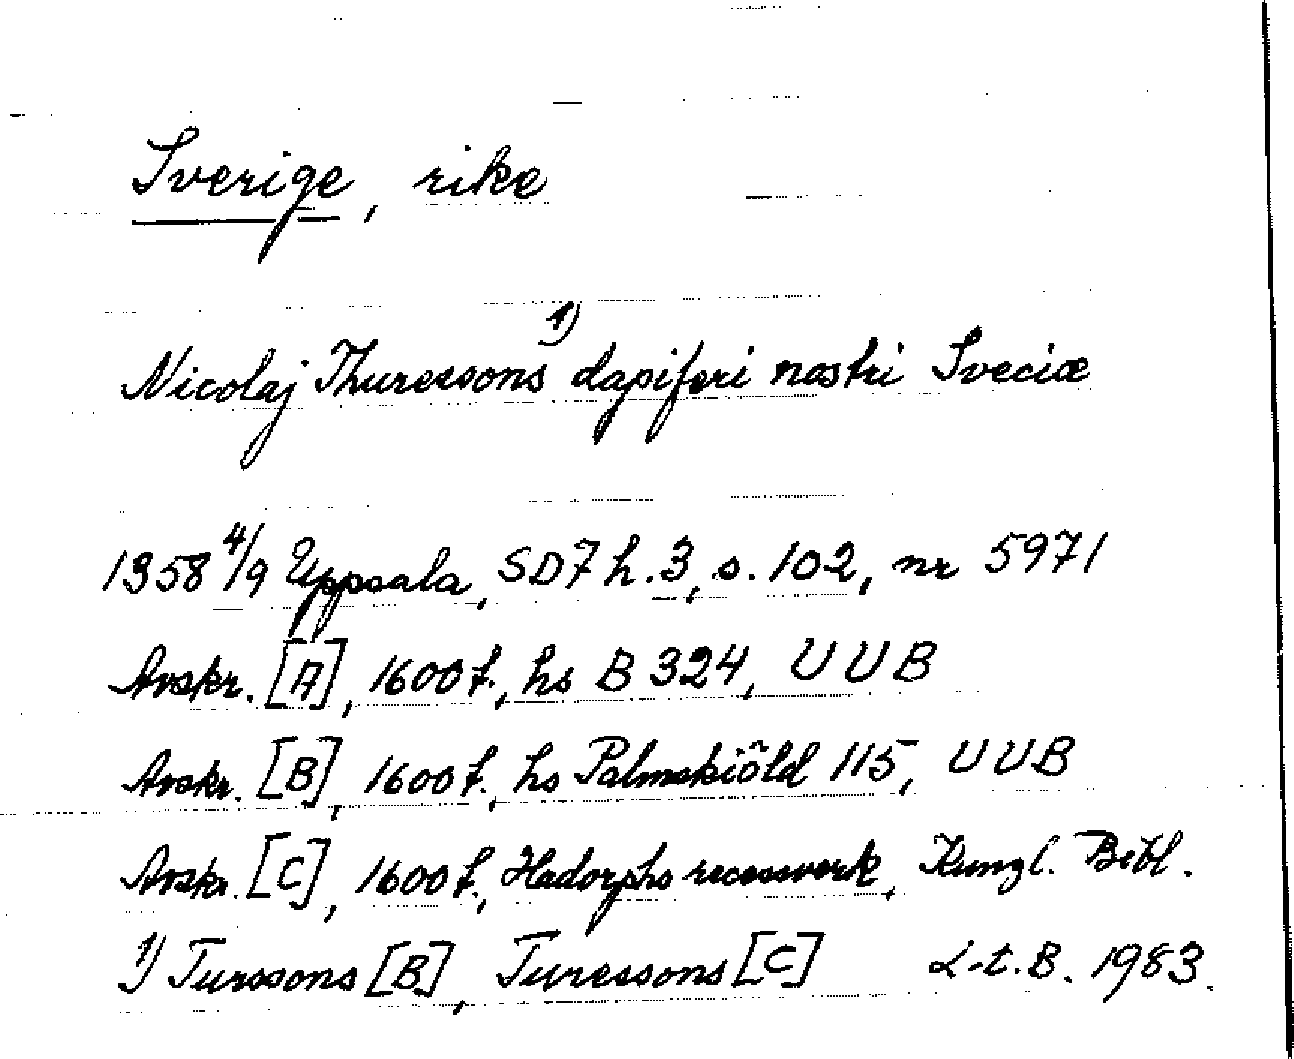 Sverige, rike
Nicolaj Thuressons 1) dapiferi nostri Sveciæ
1358 4/9 Uppsala, SD7 h.3, s. 102, nr 5971
Avskr. [A], 1600 t., hs B 324, UUB
Avskr. [B], 1600 t., hs Palmskiöld 115, UUB
Avskr. [C], 1600 t., Hadorphs recesswerk, Kungl. Bibl.
1) Turssons [B], Turessons [C] L-t. B. 1983.